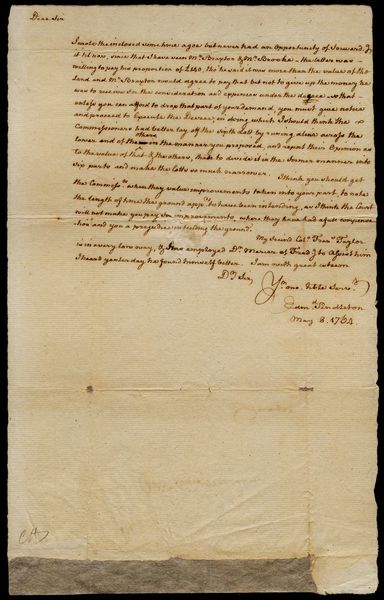 Dear Sir
I wrote the inclosed some time agoe but never had an Opportunity of forward.g
it til now, since that I have seen Mr. Braxton & Mr. Brooke - the latter was
willing to pay his proportion of £140, tho' he said it was more than the value of the
Land and Mr. Braxton would agree to pay that but not to give up the money he
was to receive in the consideration and expences under the decree so that
unless you can afford to drop that part of your demand, you must give notice
and proceed to Execute the Decree, in doing which I should think the
Commissioners had better lay off the sixth last by runing a line across the
lower end of the others in the manner you proposed, and repeat their Opinion as
to the value of that & the others, than to divide it in the former manner into
Six parts and make the lots so much narrower. I think you should get
the Commiss.rs when they value improvements taken into your part, to note
the length of time the ground app.rs to have been intended, as I think the Court
will not make you pay for improvements, where they have had a just compensa-
tion and you a prejudice in the ground.
My Friend Col.o Fran.s Taylor
is in a very low way, & has employed Dr. Mercer of Fred.g to assist him
I heard yesterday he found himself better. I am with great esteem
Dr. Sir,
Yr. mo. obte Serv.t
Edm.d Pendleton
May 3. 1764